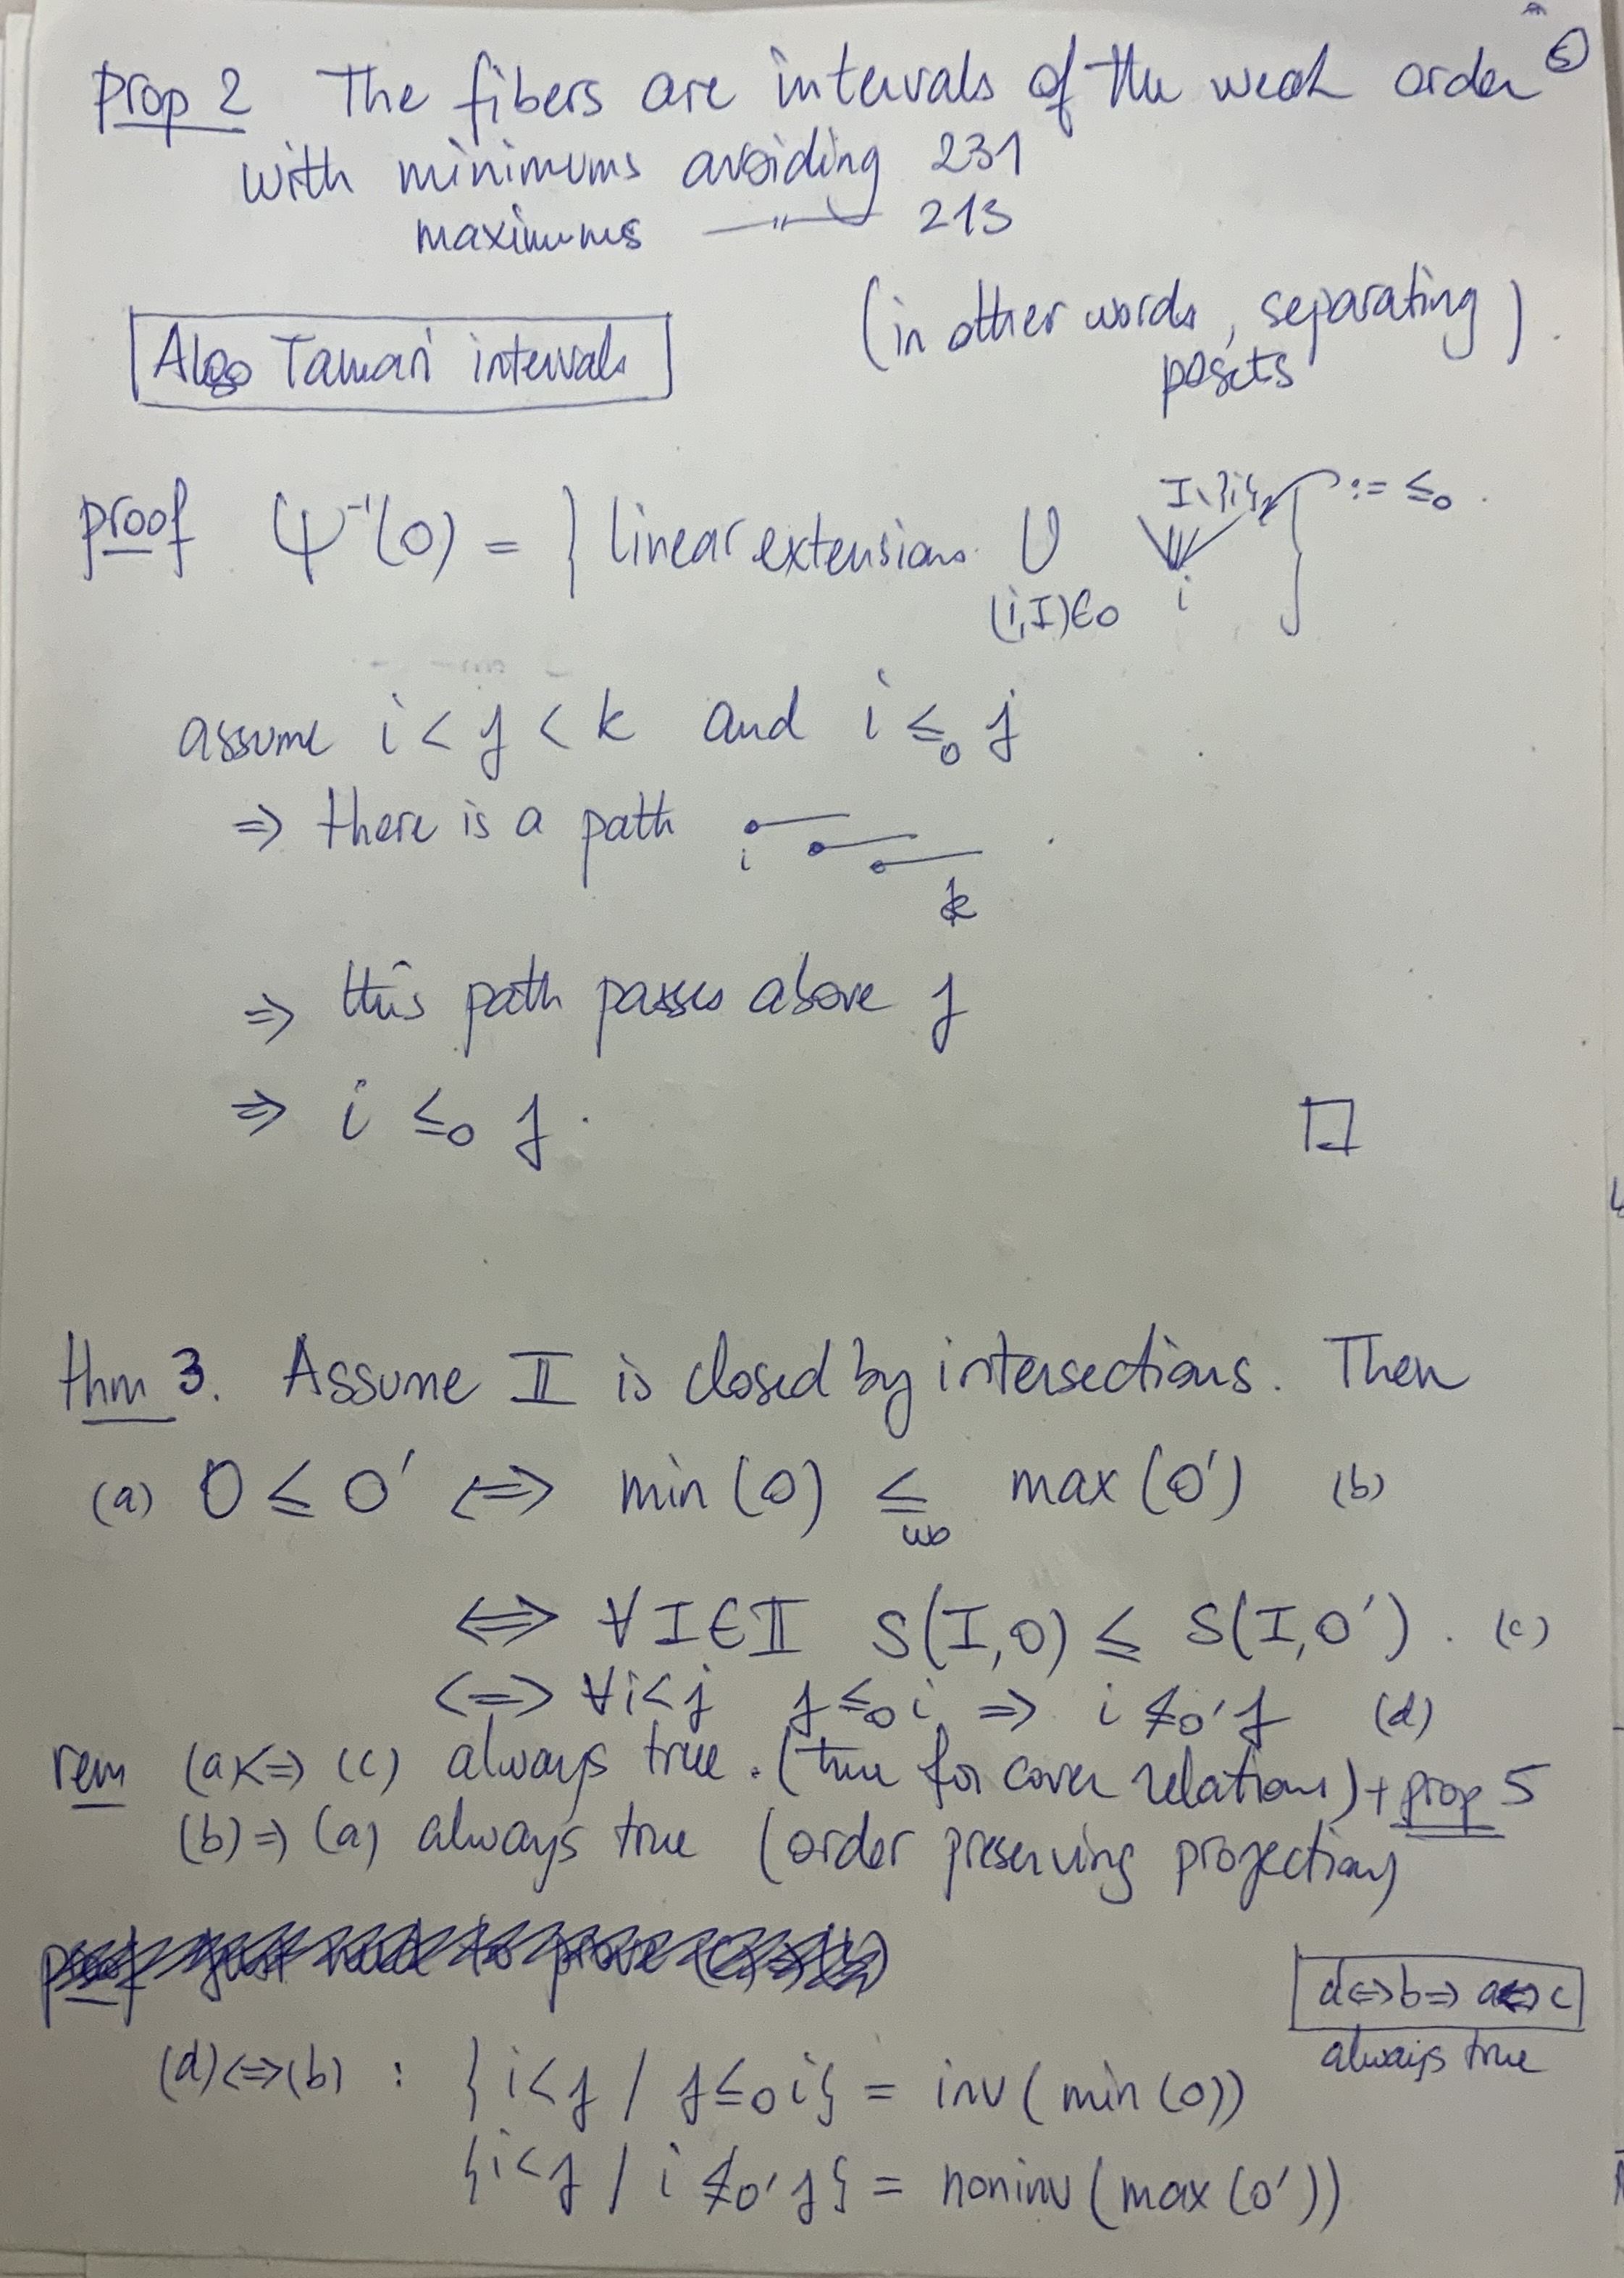 Prop 2 The fibers are intervals of the weak order 5
with minimums avoiding 231
maximums —〃— 213
(in other words, separating posets).
Also Tamari intervals
proof Ψ⁻¹(O) = { linear extensions ∪_{(i,I)∈O} I\{i} i } := ≤_O.
assume i < j < k and i ≤_O j
⇒ there is a path i k.
⇒ this path passes above j
⇒ i ≤_O j. □
thm 3. Assume 𝕀 is closed by intersections. Then
(a) O ≤ O' ⇔ min(O) ≤_wo max(O') (b)
⇔ ∀ I ∈ 𝕀 S(I,O) ≤ S(I,O'). (c)
⇔ ∀ i<j j ≤_O i ⇒ i ≰_O' j (d)
rem (a) ⇔ (c) always true. (true for cover relations) + prop 5
(b) ⇒ (a) always true (order preserving projection)
proof just need to prove
d⇔b⇒ a⇔c
always true
(d)⇔(b) : {i<j / j ≤_O i} = inv(min(O))
{i<j / i ≰_O' j} = noninv(max(O'))